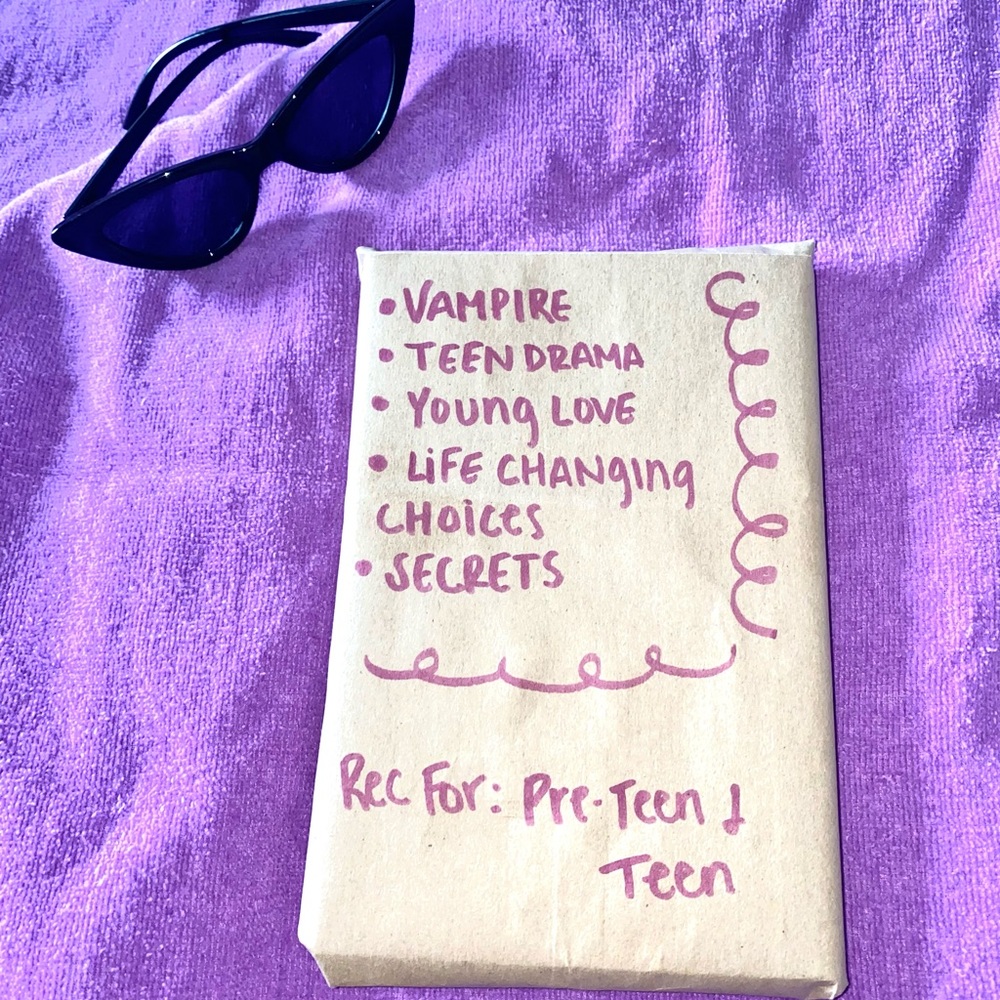 • VAMPIRE
• TEEN DRAMA
• Young LOVE
• LiFE CHANging
CHOiCES
• SECRETS
Rec For: Pre-Teen &
Teen